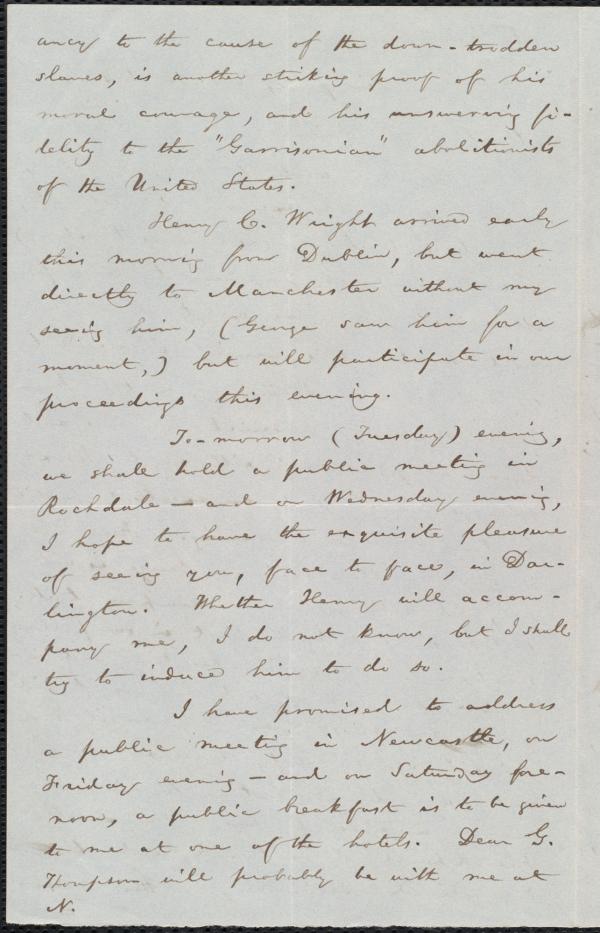 ancy to the cause of the down-trodden
slaves, is another striking proof of his
moral courage, and his unswerving fi-
delity to the "Garrisonian" abolitionists
of the United States.
Henry C. Wright arrived early
this morning from Dublin, but went
directly to Manchester without my
seeing him, (George saw him for a
moment,) but will participate in our
proceedings this evening.
To-morrow (Tuesday) evening,
we shall hold a public meeting in
Rochdale — and on Wednesday evening,
I hope to have the exquisite pleasure
of seeing you, face to face, in Dar-
lington. Whether Henry will accom-
pany me, I do not know, but I shall
try to induce him to do so.
I have promised to address
a public meeting in Newcastle, on
Friday evening — and on Saturday fore-
noon, a public breakfast is to be given
to me at one of the hotels. Dear G.
Thompson will probably be with me at
N.